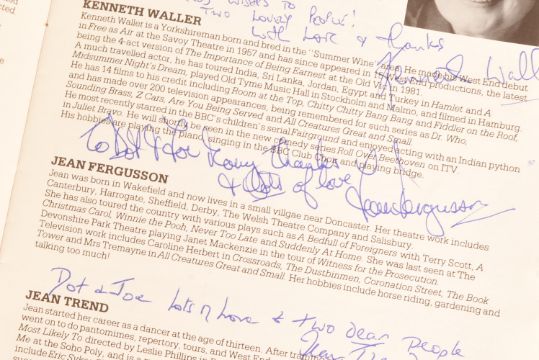 TWO Lovely People!
with Love & thanks
KENNETH WALLER
Kenneth Waller is a Yorkshireman born and bred in the "Summer Wine" area. He made his West End debut
in Free as Air at the Savoy Theatre in 1957 and has since appeared in 15 West End productions, the latest
being the 4-act version of The Importance of Being Earnest at the Old Vic in 1981.
A much travelled actor, he has toured India, Sri Lanka, Jordan, Egypt and Turkey in Hamlet and A
Midsummer Night's Dream, played Old Tyme Music Hall in Stockholm and Malmo, and filmed in Hamburg.
He has 14 films to his credit including Room at the Top, Chitty Chitty Bang Bang and Fiddler on the Roof,
and has made over 200 television appearances, being remembered for such series as Dr. Who,
Sounding Brass, Z Cars, Are You Being Served and All Creatures Great and Small.
He most recently starred in the BBC's children's serial Fairground and enjoyed acting with an Indian python
in Juliet Bravo. He will shortly be seen in the new comedy series Roll Over Beethoven on ITV
His hobbies are playing the piano, singing in the BBC Club Choir and playing bridge.
To Dot & Joe Many thanks
& lots of love
Jean Fergusson
JEAN FERGUSSON
Jean was born in Wakefield and now lives in a small villge near Doncaster. Her theatre work includes
Canterbury, Harrogate, Sheffield, Derby, The Welsh Theatre Company and Salisbury.
She has also toured the country with various plays such as A Bedful of Foreigners with Terry Scott, A
Christmas Carol, Winnie the Pooh, Never Too Late and Suddenly At Home. She was last seen at The
Devonshire Park Theatre playing Janet Mackenzie in the tour of Witness for the Prosecution.
Television work includes Caroline Herbert in Crossroads, The Dustbinmen, Coronation Street, The Book
Tower and Mrs Tremayne in All Creatures Great and Small. Her hobbies include horse riding, gardening and
talking too much!
Dot & Joe Lots n Love & two dear people
JEAN TREND
Jean started her career as a dancer at the age of thirteen. After
went on to do pantomines, repertory, tours, and West End
Most Likely To directed by Leslie Phillips in
Me at the Soho Poly, and is a
include Eric